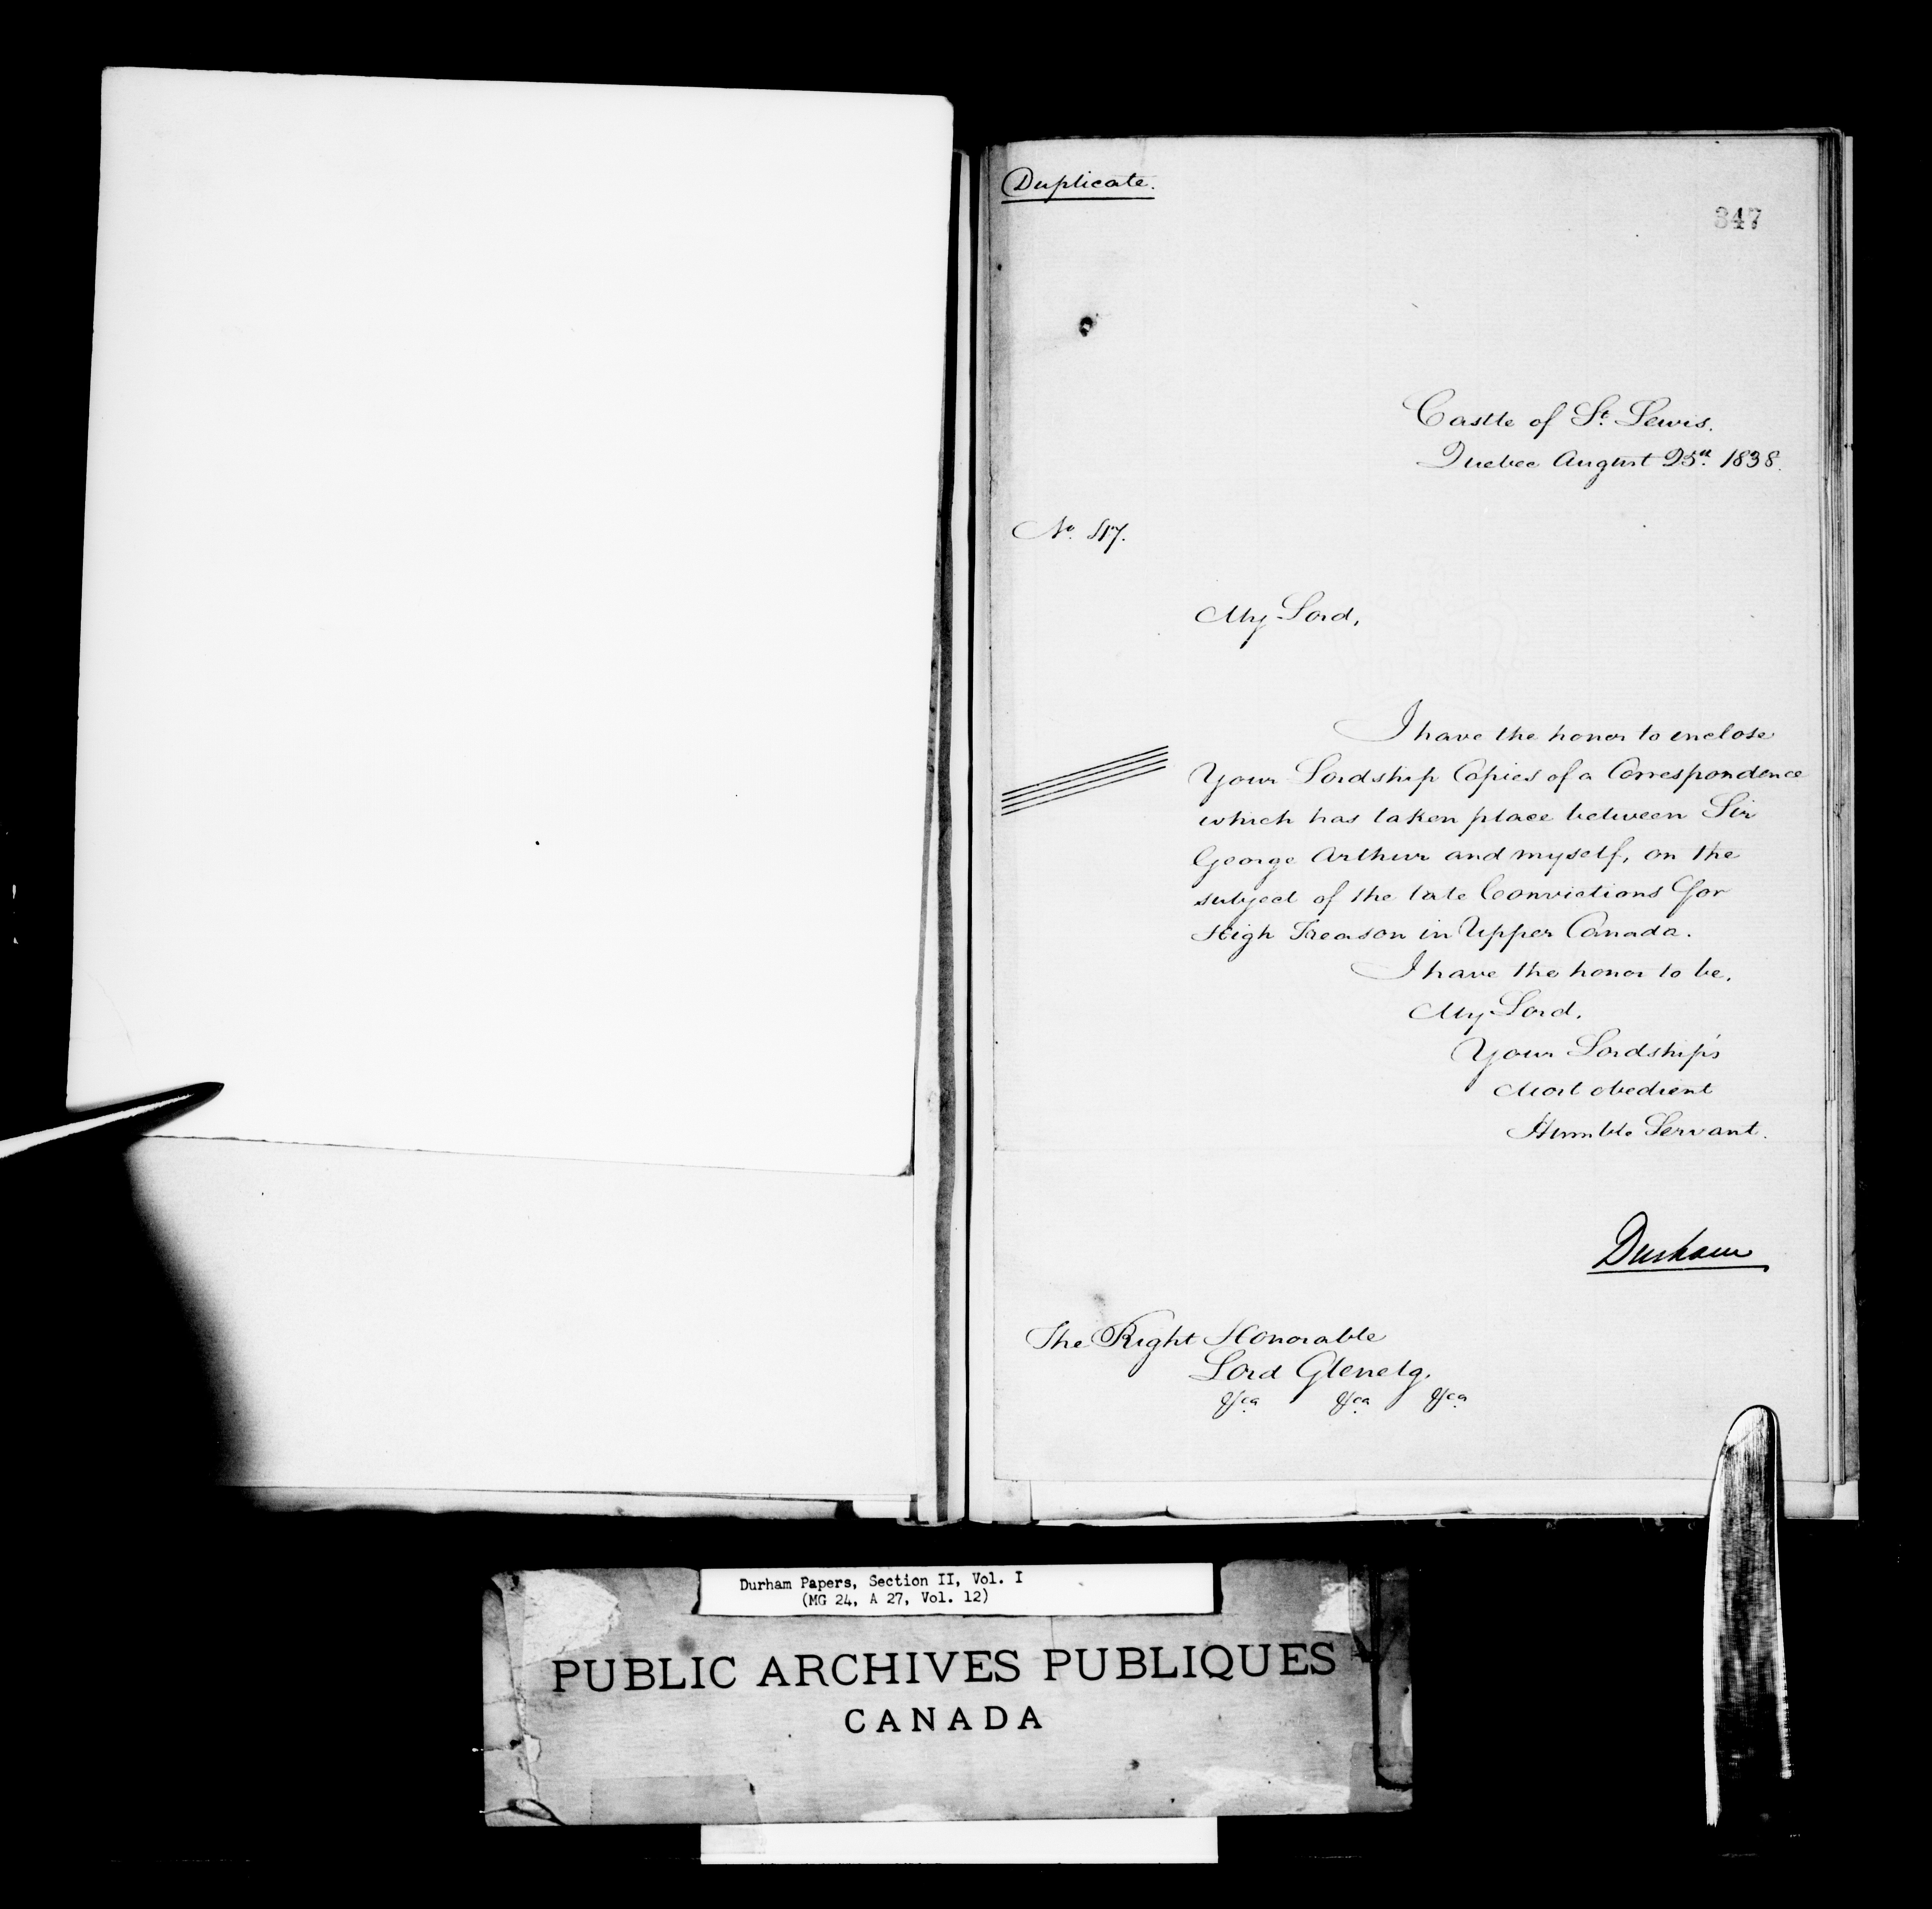 Duplicate.
347
Castle of St. Lewis.
Quebec August 25th. 1838.
No. 47.
My Lord,
I have the honor to enclose
Your Lordship Copies of a Correspondence
which has taken place between Sir
George Arthur and myself, on the
subject of the late Convictions for
High Treason in Upper Canada.
I have the honor to be,
My Lord,
Your Lordship's
Most obedient
Humble Servant.
Durham
The Right Honorable
Lord Glenelg.
&ca &ca &ca
Durham Papers, Section II, Vol. I
(MG 24, A 27, Vol. 12)
PUBLIC ARCHIVES PUBLIQUES
CANADA